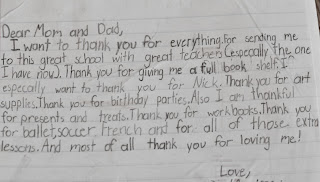 Dear Mom and Dad,
I want to thank you for everything.For sending me
to this great school with great teachers (especally the one
I have now). Thank you for giving me a full book shelf. I
especally want to thank you for Nick. Thank you for art
supplies.Thank you for birthday parties. Also I am thankful
for presents and treats. Thank you for workbooks. Thank you
for ballet,soccer, French and for all of those extra
lessons. And most of all thank you for loving me!
Love,